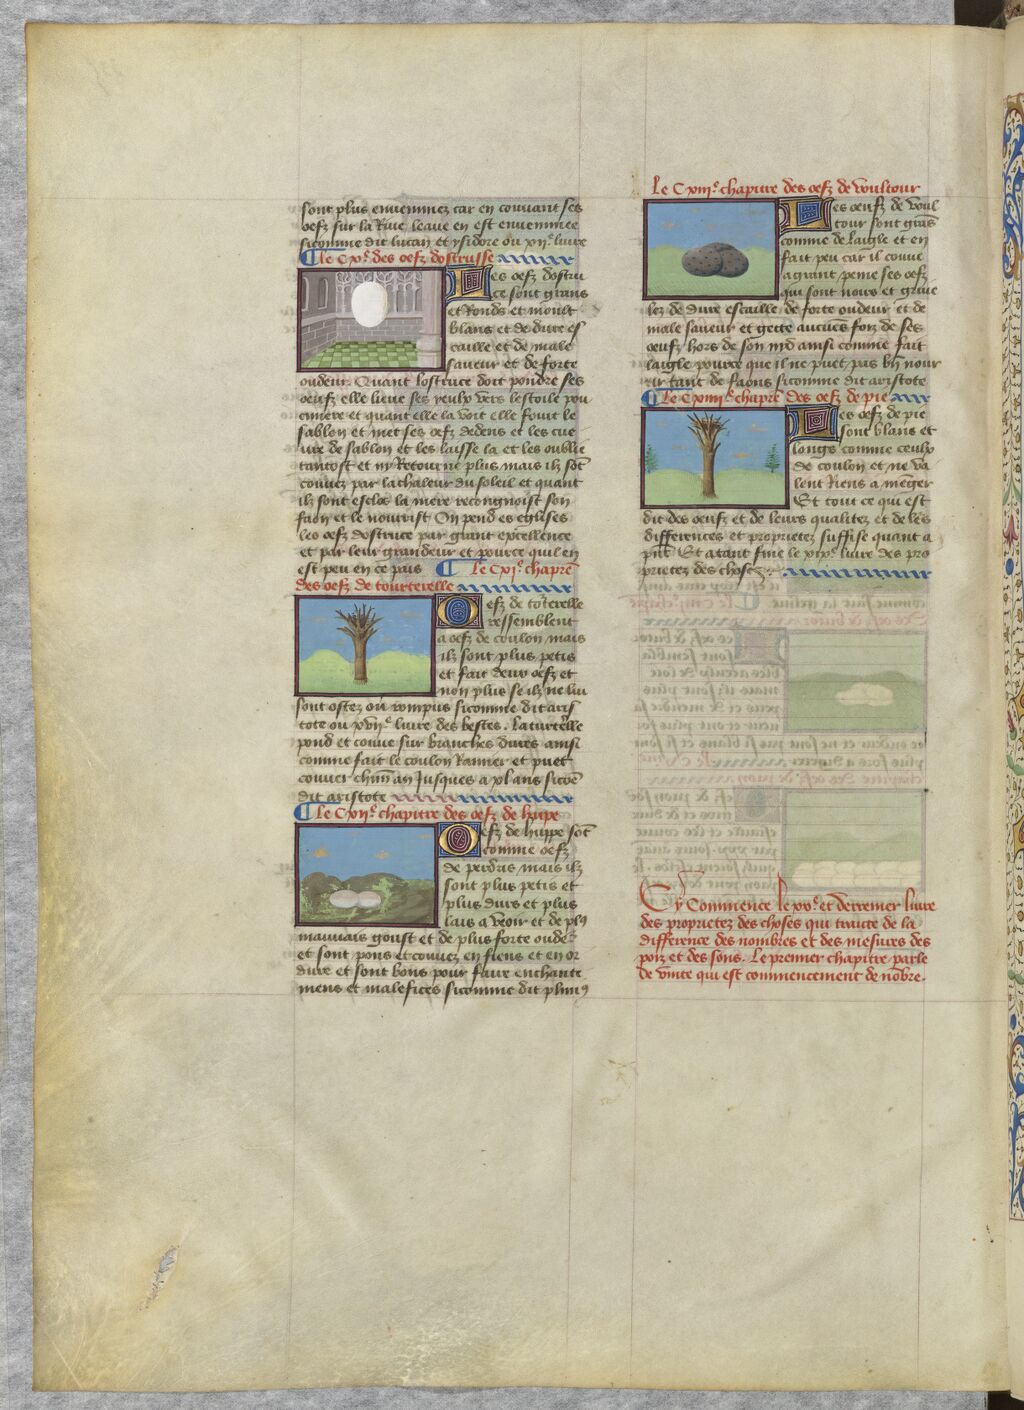 sont plus enveniez car en couvant ses
oefz sur la Rive leaue en est envenimee
sicomme dit lucan et ysidore ou xije livre
le Cxe des oefz dostrusse
es oefz dostru
ce sont grans
et Ronds et moult
blans et de dure es
caille et de male
saveur et de forte
oudeur. Quant lostruce doit pondre ses
oeufz elle lieve ses yeulx vers lestoile pou
ciniere et quant elle la voit elle fouit le
sablon et met ses oefz dedens et les cue
uvre de sablon et les laisse la et les oublie
tantost et ny Retourne plus mais ilz sot
couvez par la chaleur du soleil et quant
ilz sont esclos la mere recongnoist son
faon et le nourrist On pend es eglises
les oefz dostruce par grant excellence
et par leur grandeur et pource quil en
est peu en ce pais Le Cxie chapre
des oefz de tourterelle
Oefz de toterelle
ressemblent
a oefz de coulon mais
ilz sont plus petis
et fait deux oefz et
non plus se ilz ne lui
sont ostez ou rompus sicomme dit aris
tote ou xvije livre des bestes. La turtelle
pond et couve sur branches dures ainsi
comme fait le coulon Ramier et puet
couver chun an Jusques a xl ans sicoe
dit aristote
le Cxije chapitre des oefz de huppe
Oefz de huppe sot
comme oefz
de perdris mais ilz
sont plus petis et
plus durs et plus
lais a veoir et de pl9
mauvais goust et de plus forte oude
et sont pons et couvez en fiens et en or
dure et sont bons pour faire enchante
mens et malefices sicomme dit plini9
Le Cxiije chapitre des oefz de voultour
es oeufz de voul
tour sont grans
comme de laigle et en
fait peu car il couve
a grant peine ses oefz
qui sont noirs et grive
lez de dure escaille de forte oudeur et de
male saveur et gette aucues foiz de ses
oeufz hors de son nid ainsi comme fait
laigle pource que il ne puet pas bn nour
rir tant de faons sicomme dit aristote
Le Cxiiije chapre des oefz de pie
es oefz de pie
sont blans et
longs comme ceulx
de coulon et ne va
lent Riens a meger
Et tout ce qui est
dit des oeufz et de leurs qualitez et de les
differences et proprietez suffise quant a
pnt Et atant fine le xixe livre des pro
prietez des choses
Cy Commence le xxe et derrenier livre
des proprietez des choses qui traicte de la
difference des nombres et des mesures des
poiz et des sons. Le premier chapitre parle
de vnite qui est commencement de nobre.